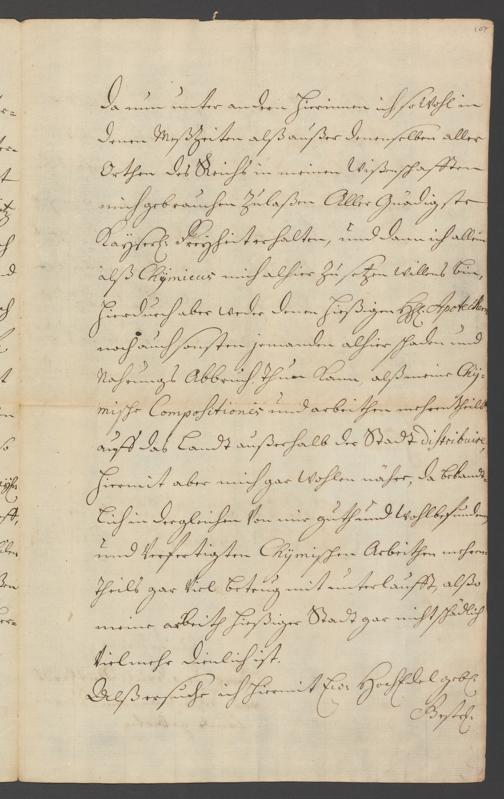 107
Da nun unter andern hierinnen ich so wohl in
denen Meßzeiten alß außer denenselben aller
Orthen des Reichs in meinen Wißenschafften
mich gebrauchen zulaßen Aller Gnädigste
Kayserl: Freyheit erhalten, und dann ich allein
alß Chÿmicus mich alhier zu setzen willens bin,
hierdurch aber weder denen hießigen HH: Apotekern
noch auch sonsten jemanden alhier schaden und
Nahrungs Abbruch thun kann, alß meine Chÿ-
mische Compositiones und arbeithen mehren theils
auff das Landt außerhalb der Stadt distribuire,
hiermit aber mich gar wohlen nähre, da bekandt-
lich in dergleichen von mir guth und wohlbefundenen
und verfertigten Chÿmischen Arbeithen mehren
theils gar viel betrug mit unterlaufft, alßo
meine arbeith hießiger Stadt gar nicht schädlich
vielmehr dienlich ist.
Alß ersuche ich hiermit Ew: HochEdel geb: